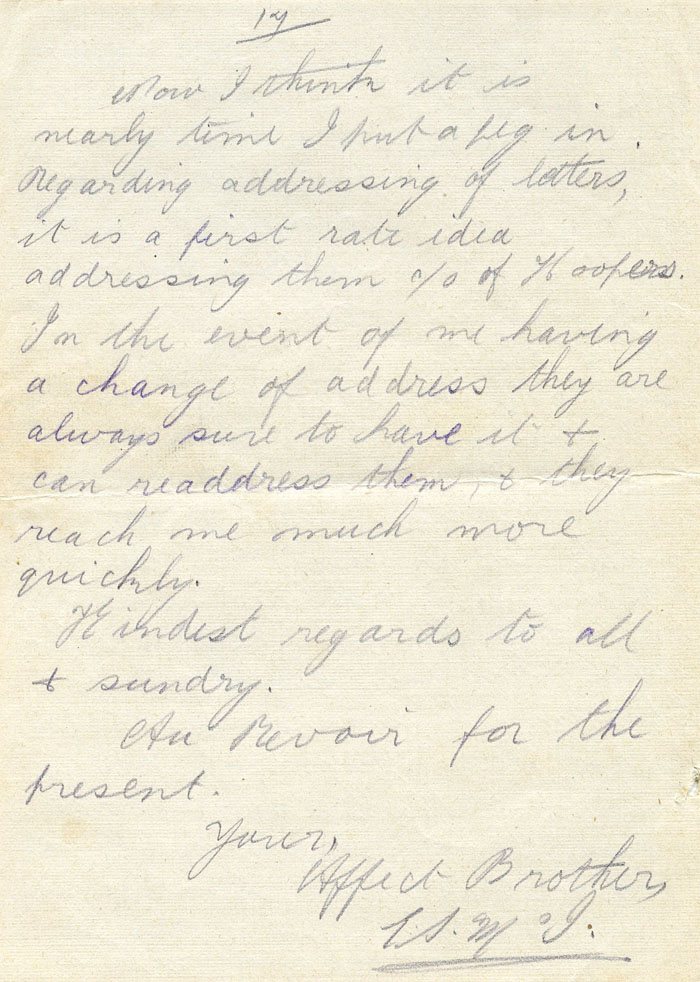 14
Now I think it is
nearly time I put a peg in.
Regarding addressing of letters,
it is a first rate idea
addressing them c/o of Hoopers.
In the event of me having
a change of address they are
always sure to have it +
can readdress them, & they
reach me much more
quickly.
Kindest regards to all
& sundry.
Au Revoir for the
present.
Your,
Affect Brother,